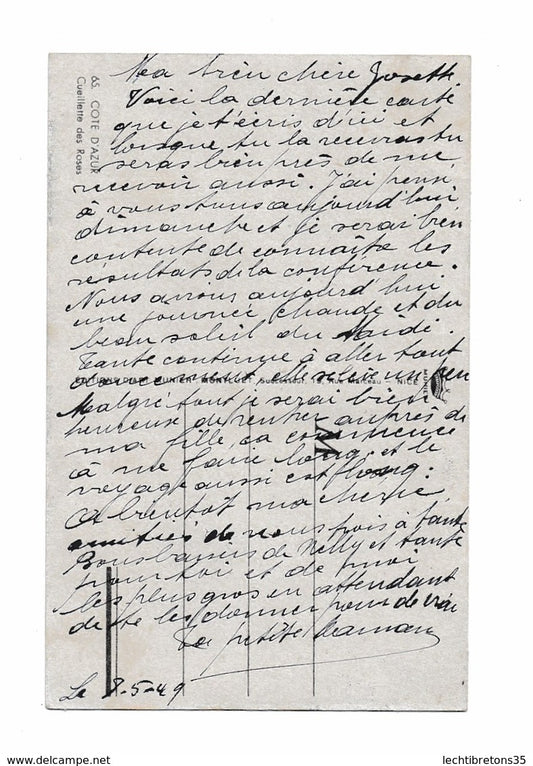 65. COTE D'AZUR
Cueillette des Roses
Ma bien chère Josette.
Voici la dernière carte
que je t'écris d'ici et
lorsque tu la recevras tu
seras bien près de me
recevoir aussi. J'ai pensé
à vous tous aujourd'hui
dimanche et je serai bien
contente de connaître les
résultats de la conférence.
Nous avons aujourd'hui
une journée chaude et du
beau soleil du Midi.
Tante continue à aller tout
doucement elle se lève un peu
MUNIER Successeur, Rue NICE
Malgré tout je serai bien
heureuse de rentrer auprès de
ma fille, ça commence
à me faire long et le
voyage aussi est long.
A bientôt ma chérie
amitiés de nous trois à tante
Bons baisers de Nelly et tante
pour toi et de moi
les plus gros en attendant
de te les donner pour de vrai
Ta petite Maman
Le 8-5-49
lechtibretons35